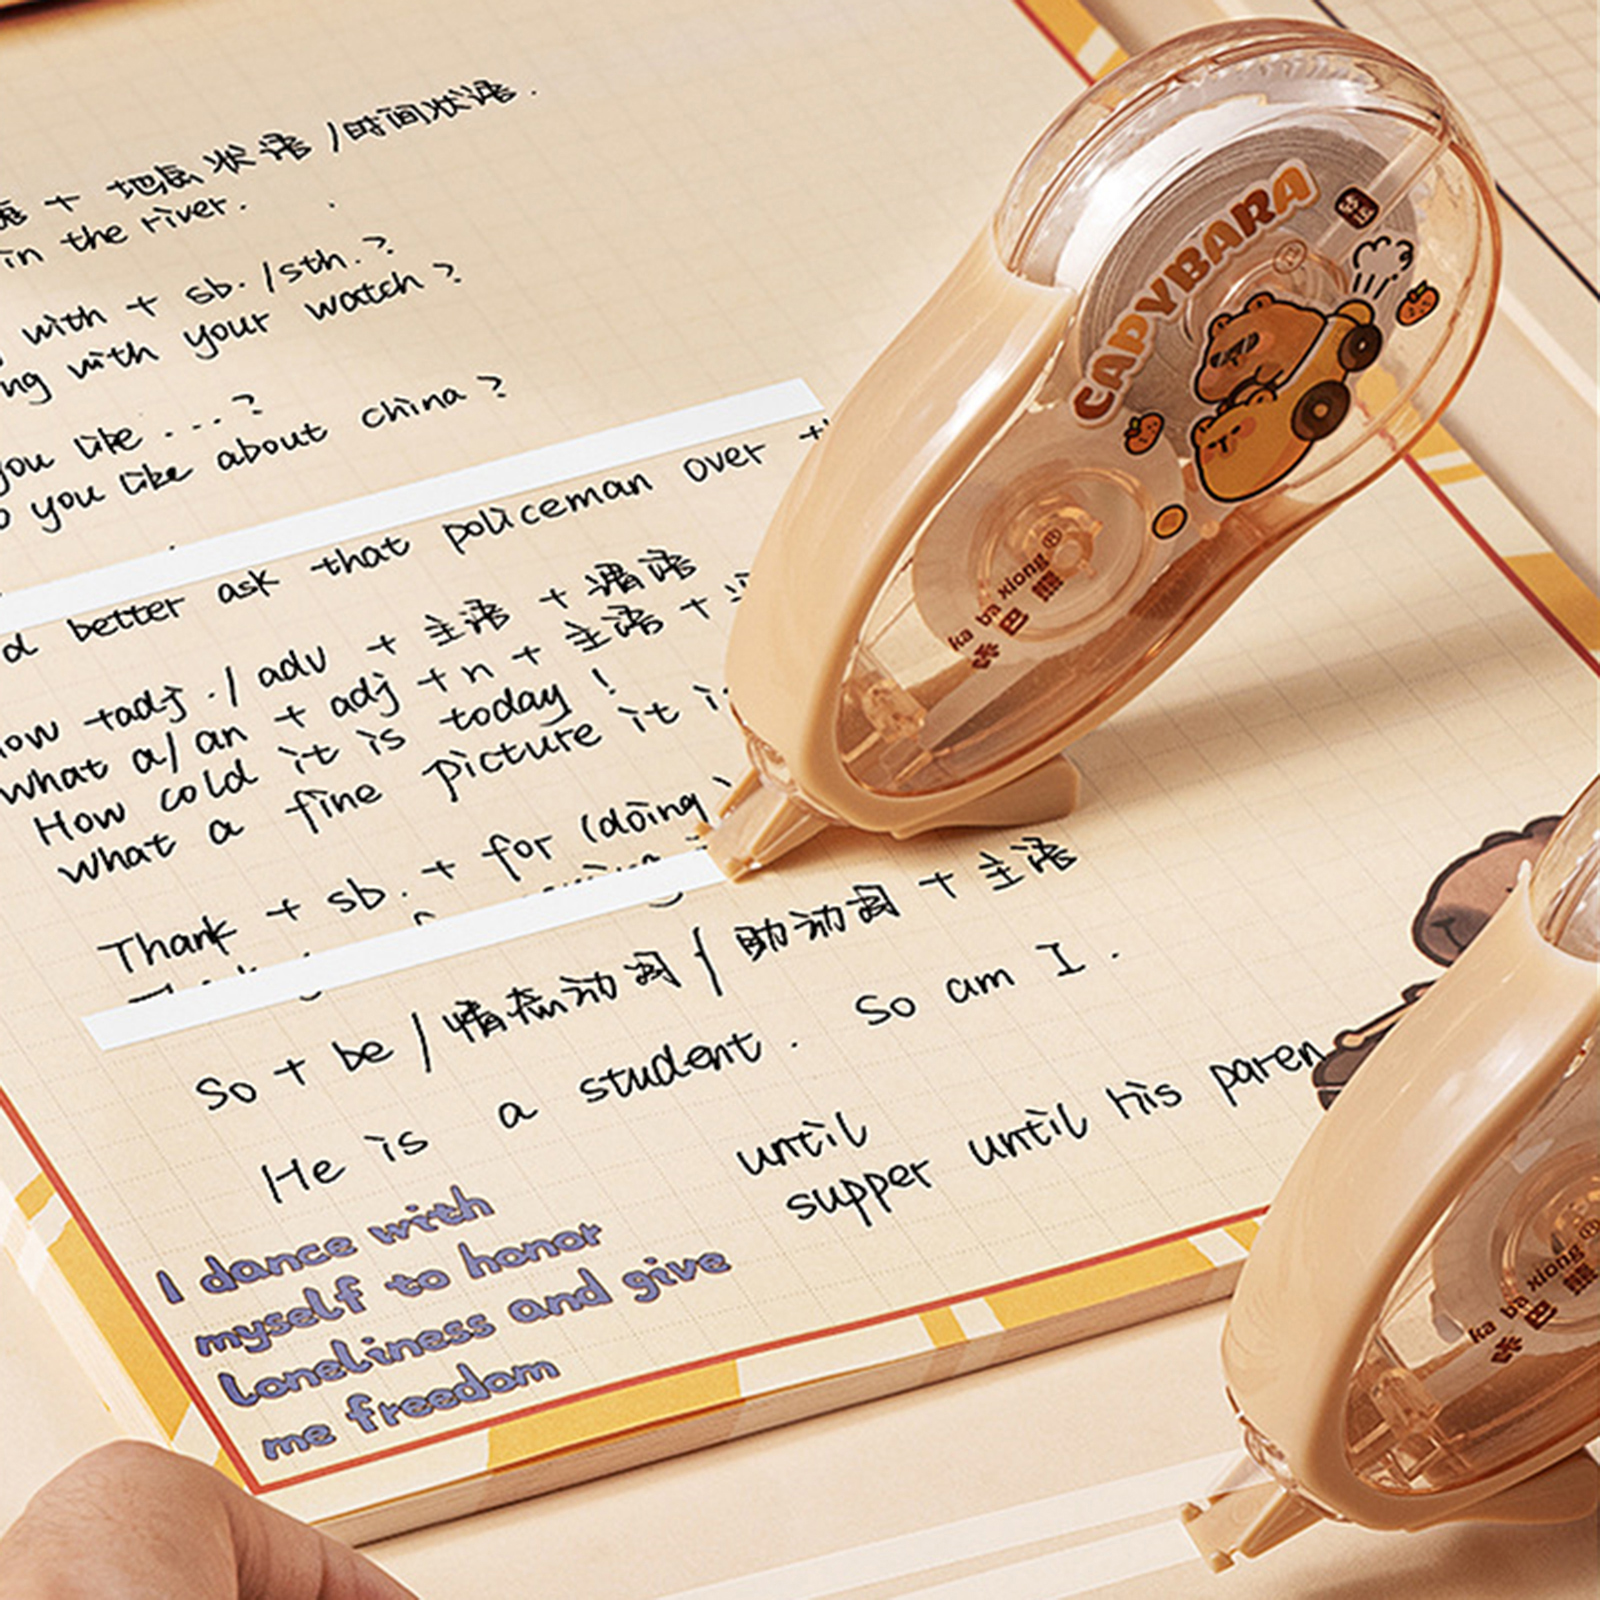 语 + 地点状语 / 时间状语.
in the river.
with + sb. / sth. ?
ng with your watch ?
you like ... ?
o you like about China ?
d better ask that policeman over th
How +adj. / adv + 主语 + 谓语
What a / an + adj + n + 主语 +
How cold it is today !
What a fine picture it i
Thank + sb. + for (doing)
So + be / 情态动词 / 助动词 + 主语
He is a student. So am I.
until
supper until his paren
I dance with
myself to honor
loneliness and give
me freedom
CAPYBARA
ka ba xiong®
卡巴熊
ka ba xiong®
卡巴熊